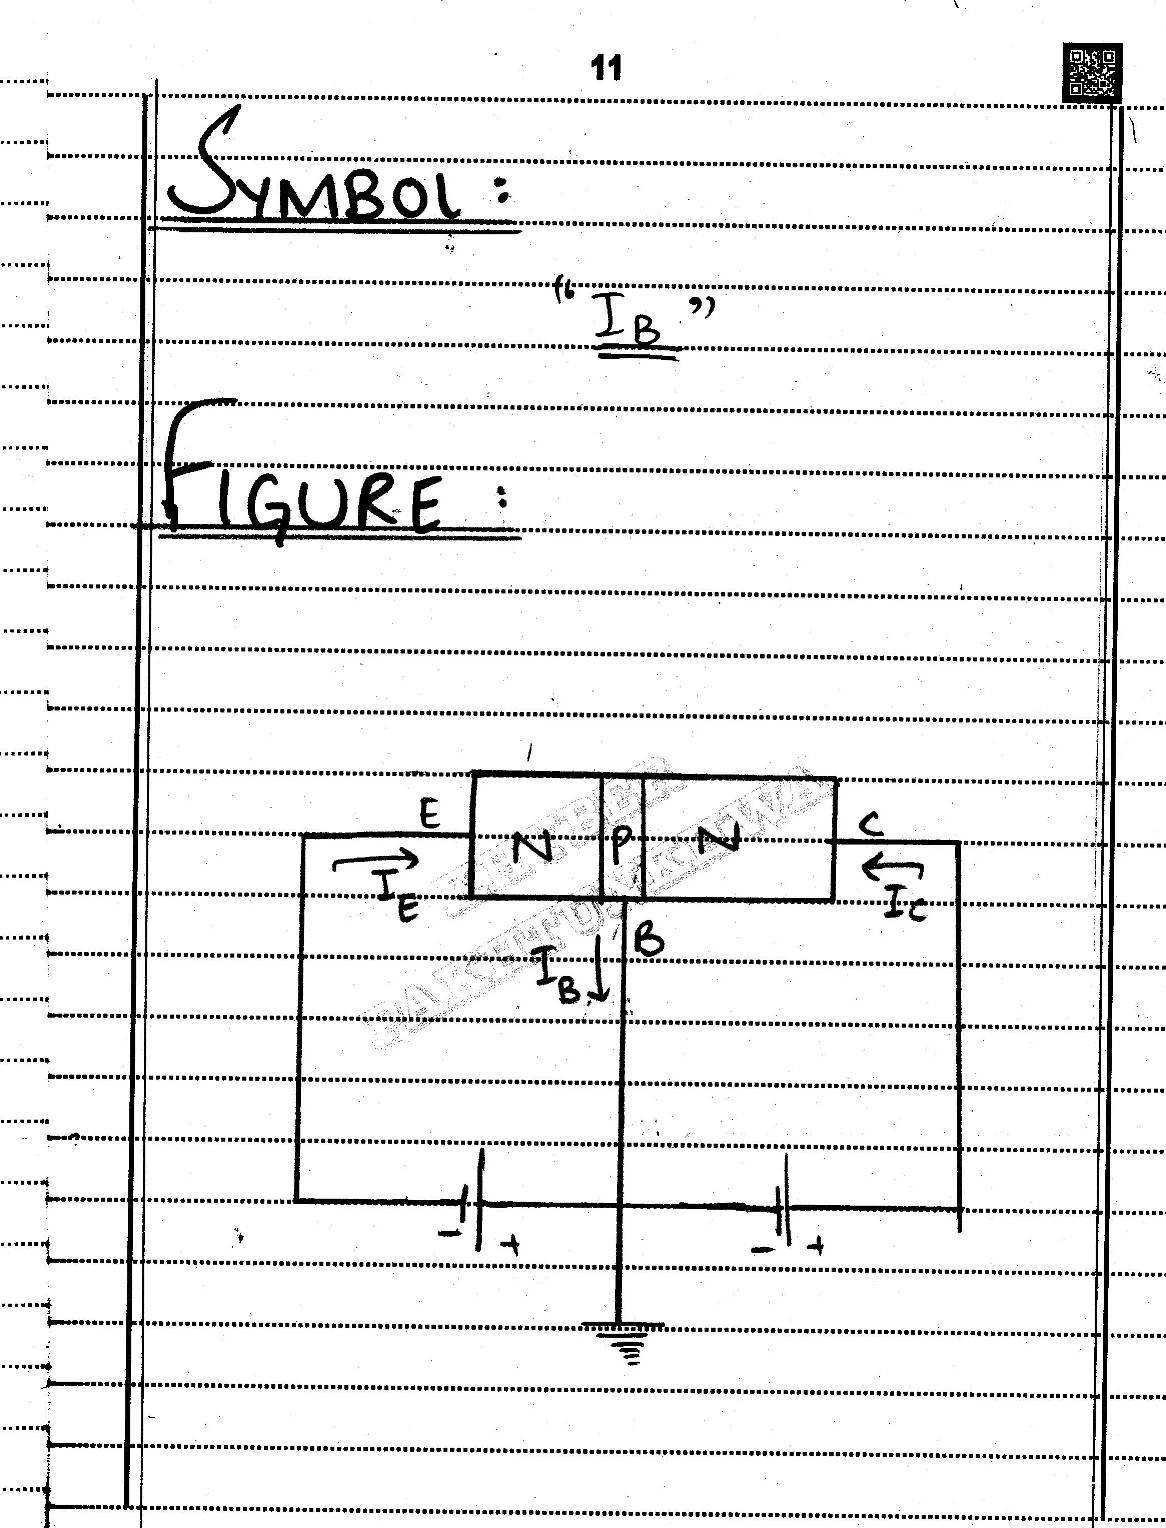 11
SYMBOL :
“ IB ”
FIGURE :
E N P N C
IE IC
IB B
- + - +